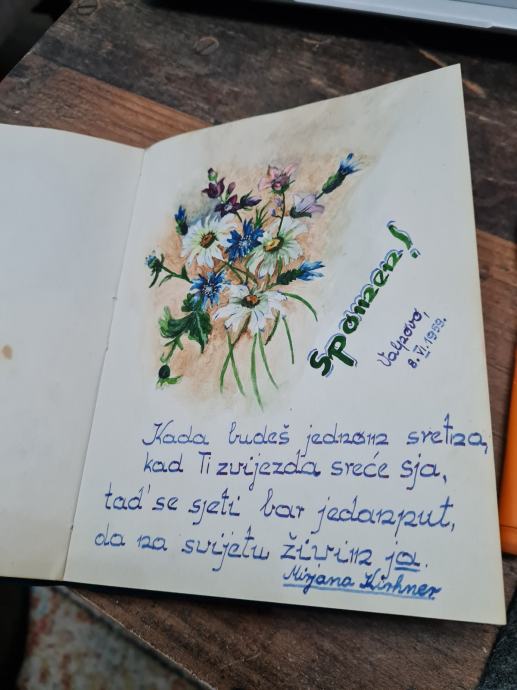 Spomen!
Valpovo,
8. VI. 1959.
Kada budeš jednom sretna,
kad Ti zvijezda sreće sja,
tad' se sjeti bar jedanput,
da na svijetu živim ja.
Mirjana Kirhner